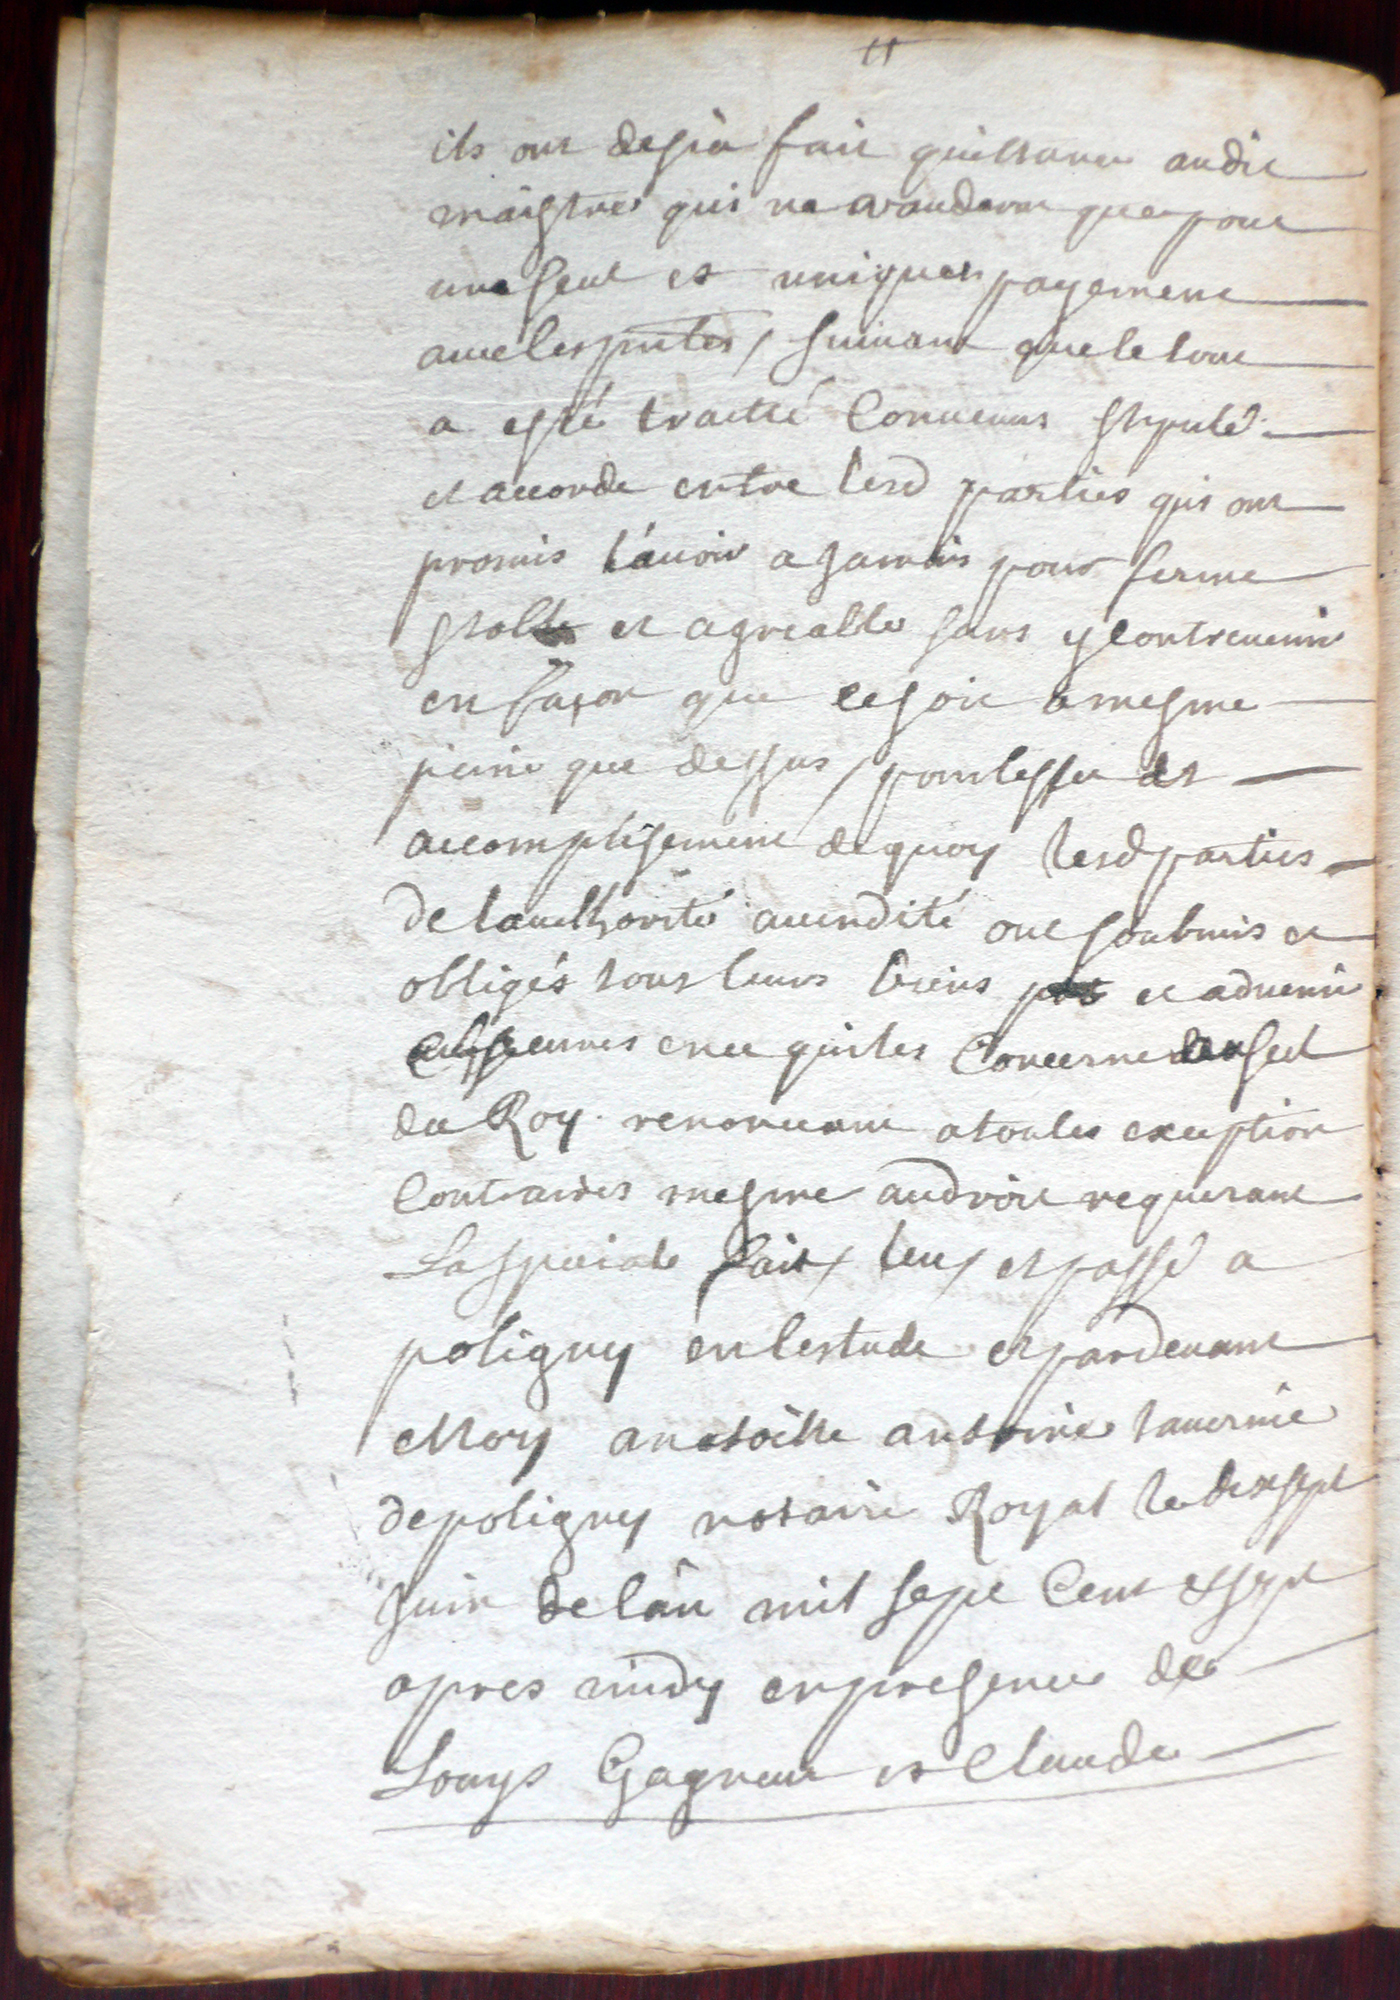 11
ils ont desja fait quittance audit
maistre qui ne vaudront que pour
une seul et unique payement
avec les pntes / suivant que le tout
a esté traitté Convenus stipulé
et accorde entre lesd parties qui ont
promis lávoir a jamais pour ferme
stable et agreable sans y contrevenir
en façon que ce soit a mesme
peine que dessus / pour lesfer et
accomplisement de quoy lesd parties
de lauthorité avendité ont soubmis et
obligés tous leurs biens pnt et advenir
en ce quil les Concerne seel
du Roy. renonceant a toutes exception
Contraires mesme au droit requerant
La speciale fait / leu / et passé a
poligny en lestude et pardevant
Moy antoine tavernie
de poligny notaire Royal le dixsept
Juin de lân mil sept Cent et sept
apres midy en presence de
Louys Gagneur et Claude